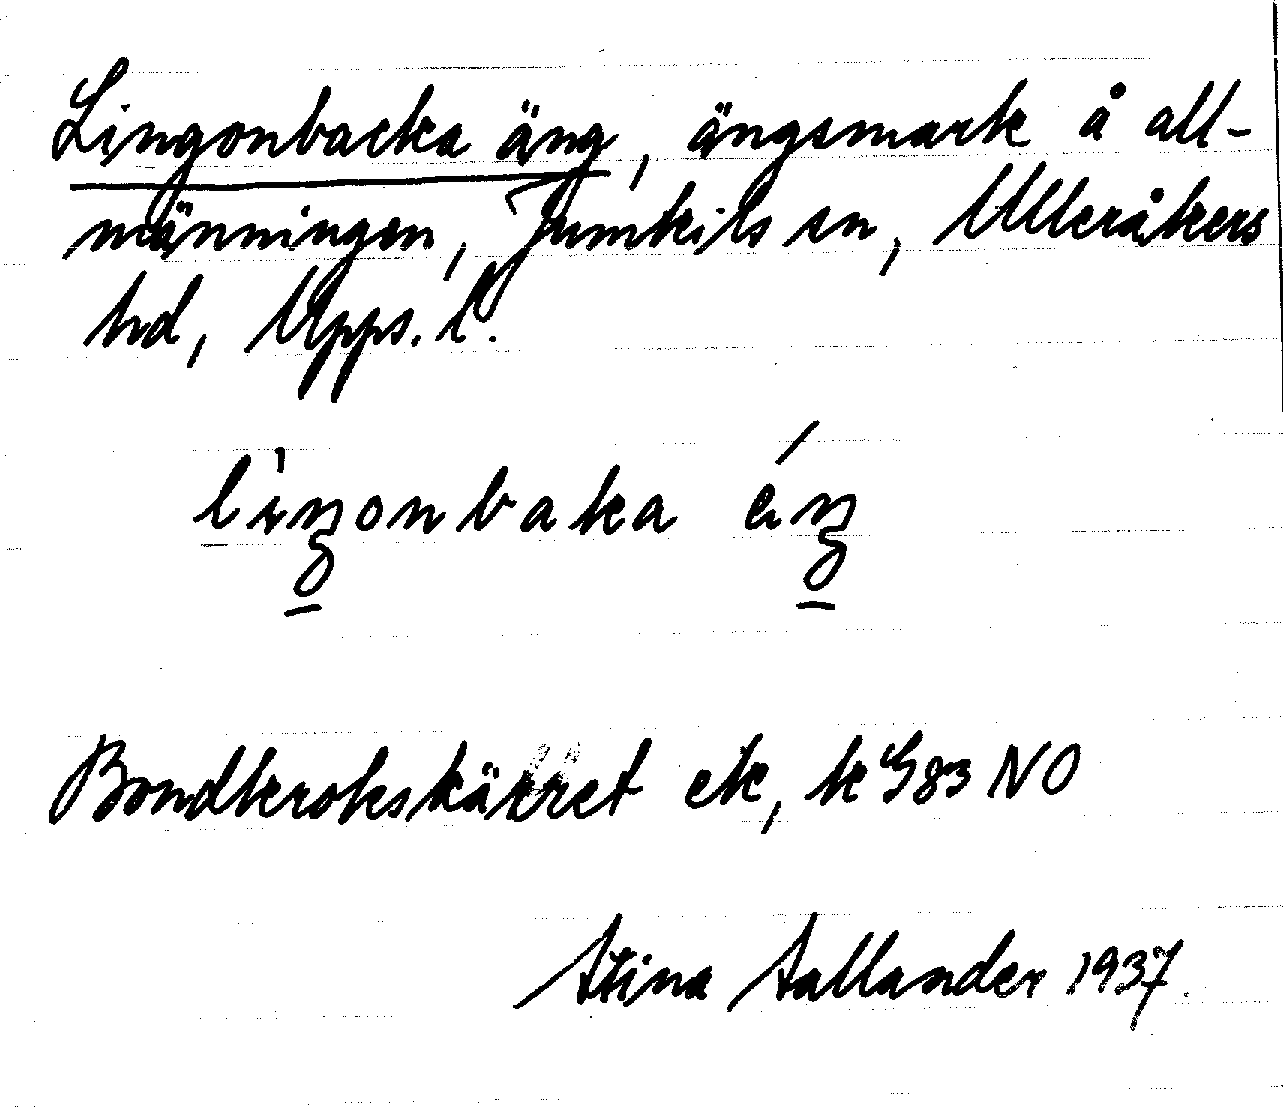 Lingonbacka äng, ängsmark å all-
männingen, Jumkils sn, Ulleråkers
hd, Upps. l.
liŋonbaka éŋ
Bondkrokskärret ek, k G83 NO
Stina Sallander 1937.